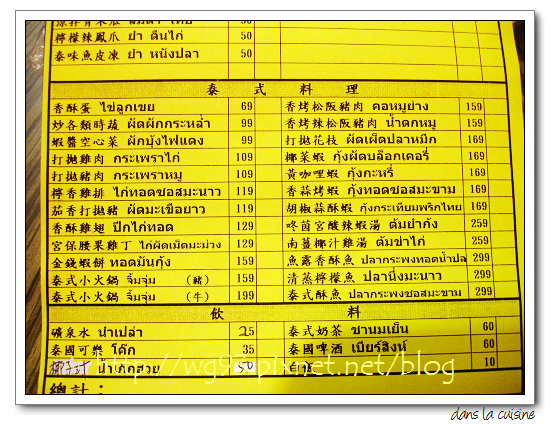 檸檬辣鳳爪 ยำ ตีนไก่ 50
泰味魚皮凍 ยำ หนังปลา 50
泰 式 料 理
香酥蛋 ไข่ลูกเขย 69 香烤松阪豬肉 คอหมูย่าง 159
炒各類時蔬 ผัดผักกระหล่ำ 99 香烤辣松阪豬肉 น้ำตกหมู 159
蝦醬空心菜 ผักบุ้งไฟแดง 99 打拋花枝 ผัดเผ็ดปลาหมึก 169
打拋雞肉 กระเพราไก่ 109 椰菜蝦 กุ้งผัดบล็อกเคอรี่ 169
打拋豬肉 กระเพราหมู 109 黃咖哩蝦 กุ้งกะหรี่ 169
檸香雞排 ไก่ทอดซอสมะนาว 119 香蒜烤蝦 กุ้งทอดซอสมะขาม 169
茄香打拋豬 ผัดมะเขือยาว 119 胡椒蒜酥蝦 กุ้งกระเทียมพริกไทย 169
香酥雞翅 ปีกไก่ทอด 129 咚茵宮酸辣蝦湯 ต้มยำกุ้ง 259
宮保腰果雞丁 ไก่ผัดเม็ดมะม่วง 129 南薑椰汁雞湯 ต้มข่าไก่ 259
金錢蝦餅 ทอดมันกุ้ง 159 魚露香酥魚 ปลากระพงทอดน้ำปลา 299
泰式小火鍋 จิ้มจุ่ม (豬) 159 清蒸檸檬魚 ปลานึ่งมะนาว 299
泰式小火鍋 จิ้มจุ่ม (牛) 199 泰式酥魚 ปลากระพงซอสมะขาม 299
飲 料
礦泉水 น้ำเปล่า 25 泰式奶茶 ชานมเย็น 60
泰國可樂 โค้ก 35 泰國啤酒 เบียร์สิงห์ 60
椰子汁 50 10
總計:
dans la cuisine